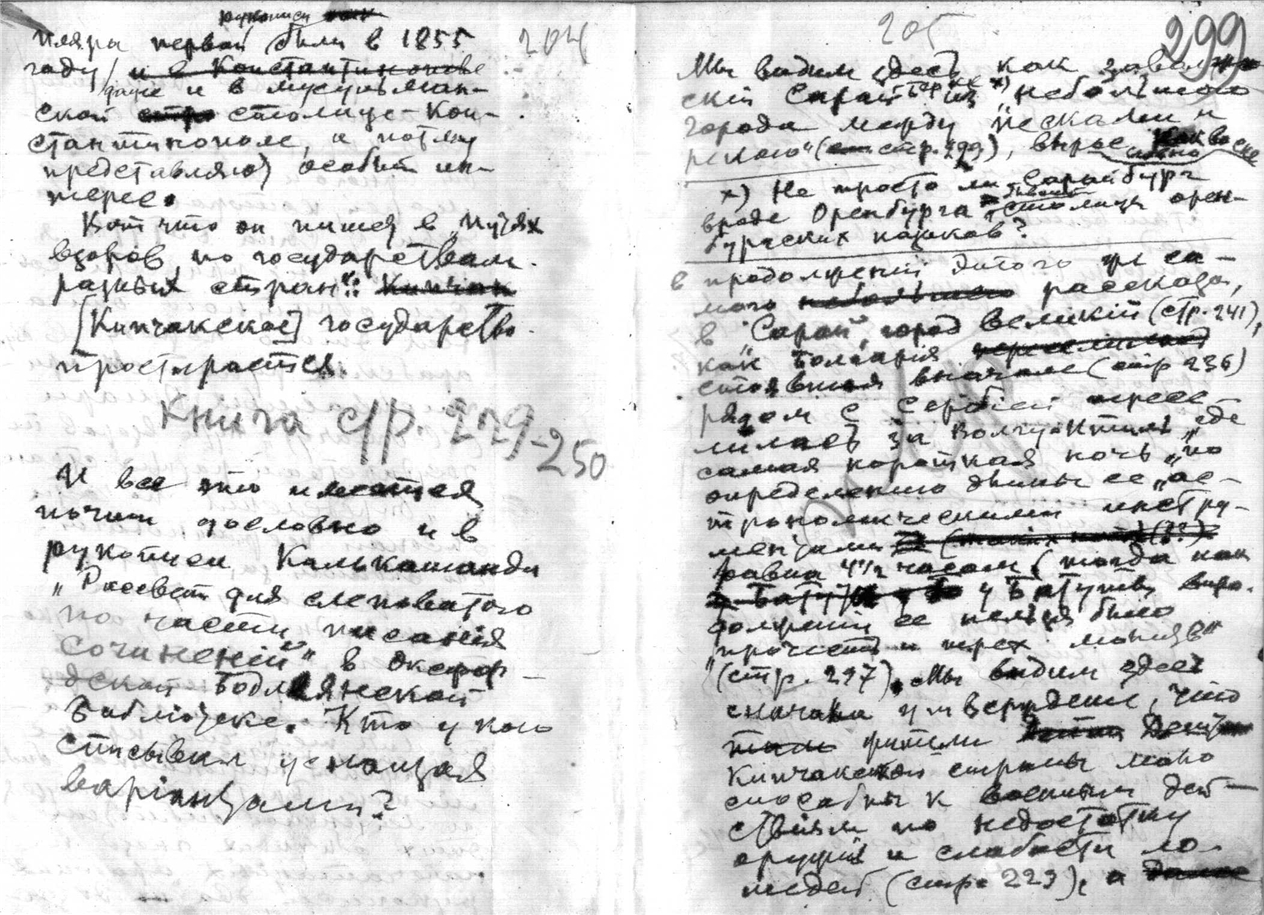 рукописи
204
пляра первой были в 1855
году / и в Константинопле
даже и в мусульман-
ской столице Кон-
стантинополе, и потому
представляю) особый ин-
терес.
Вот что он пишет в „Путях
взоров по государствам
разных стран“:
[Кипчакское] государство
простирается
Книга стр. 229-250
И все это имеется
почти дословно и в
рукописи Калькашанди
„Рассвет для слеповатого
по части писания
сочинений“ в Оксфор-
дской Бодлянской
Библіотеке. Кто у кого
списывал уснащая
варіантами?
205
299
Мы видим здесь как
скій Сарай из х) „небольшого
города между песками и
рекою“ (стр. 299), вырос
х) Не просто ли Сарайбург
вроде Оренбурга бывшей столицы орен-
бургских казаков?
в продолжений этого же са-
мого рассказа,
в „Сарай, город великій (стр. 241),
как Болгарія
стоявшая вначале (стр 236)
рядом с Сербіей пересе
лилась за Волгу-Итиль, где
самая короткая ночь „по
определению длины ее „ас-
трономическими инстру-
ментами
равна 4½ часам (тогда как
у Батуты впро-
должении ее нельзя было
„прочесть и трех молитв“
(стр. 297). Мы видим здесь
сначала утверждение, что
жители
Кипчакской страны мало
способны к военным дей-
ствіям по недостатку
орудий и слабости ло-
шадей (стр. 229), а